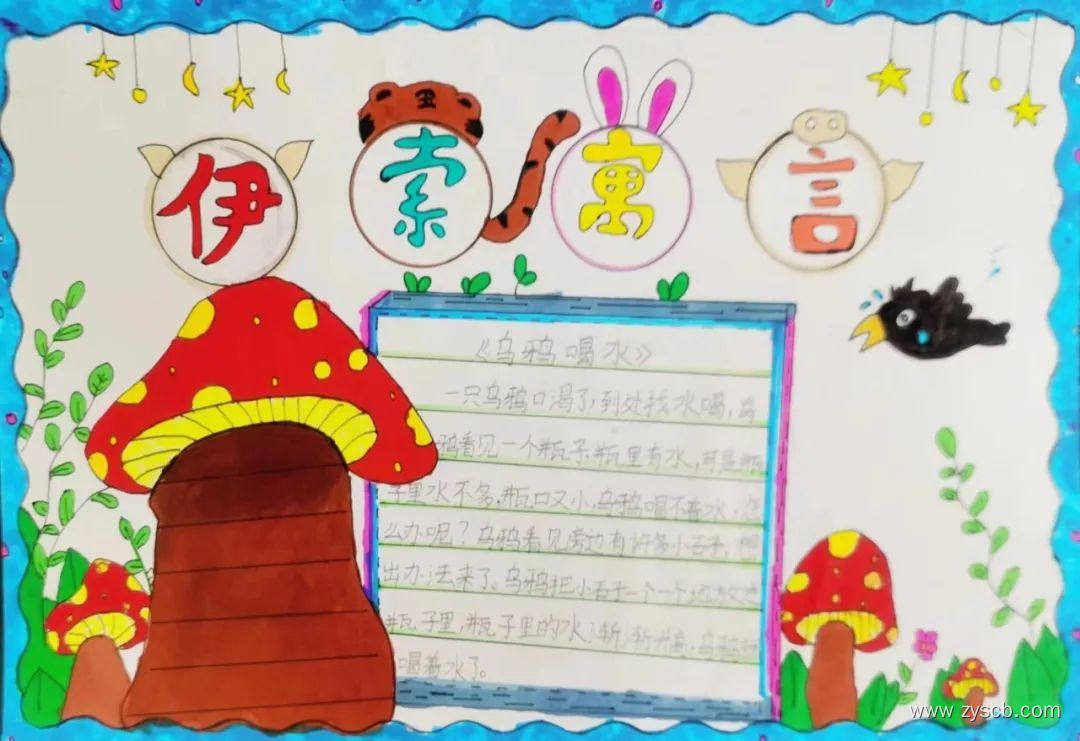 伊索寓言
《乌鸦喝水》
一只乌鸦口渴了,到处找水喝,乌
鸦看见一个瓶子,瓶里有水,可是瓶
子里水不多,瓶口又小,乌鸦喝不着水,怎
么办呢?乌鸦看见旁边有许多小石子,想
出办法来了。乌鸦把小石子一个一个地放进
瓶子里,瓶子里的水渐渐升高,乌鸦就
喝着水了。
www.zyscb.com